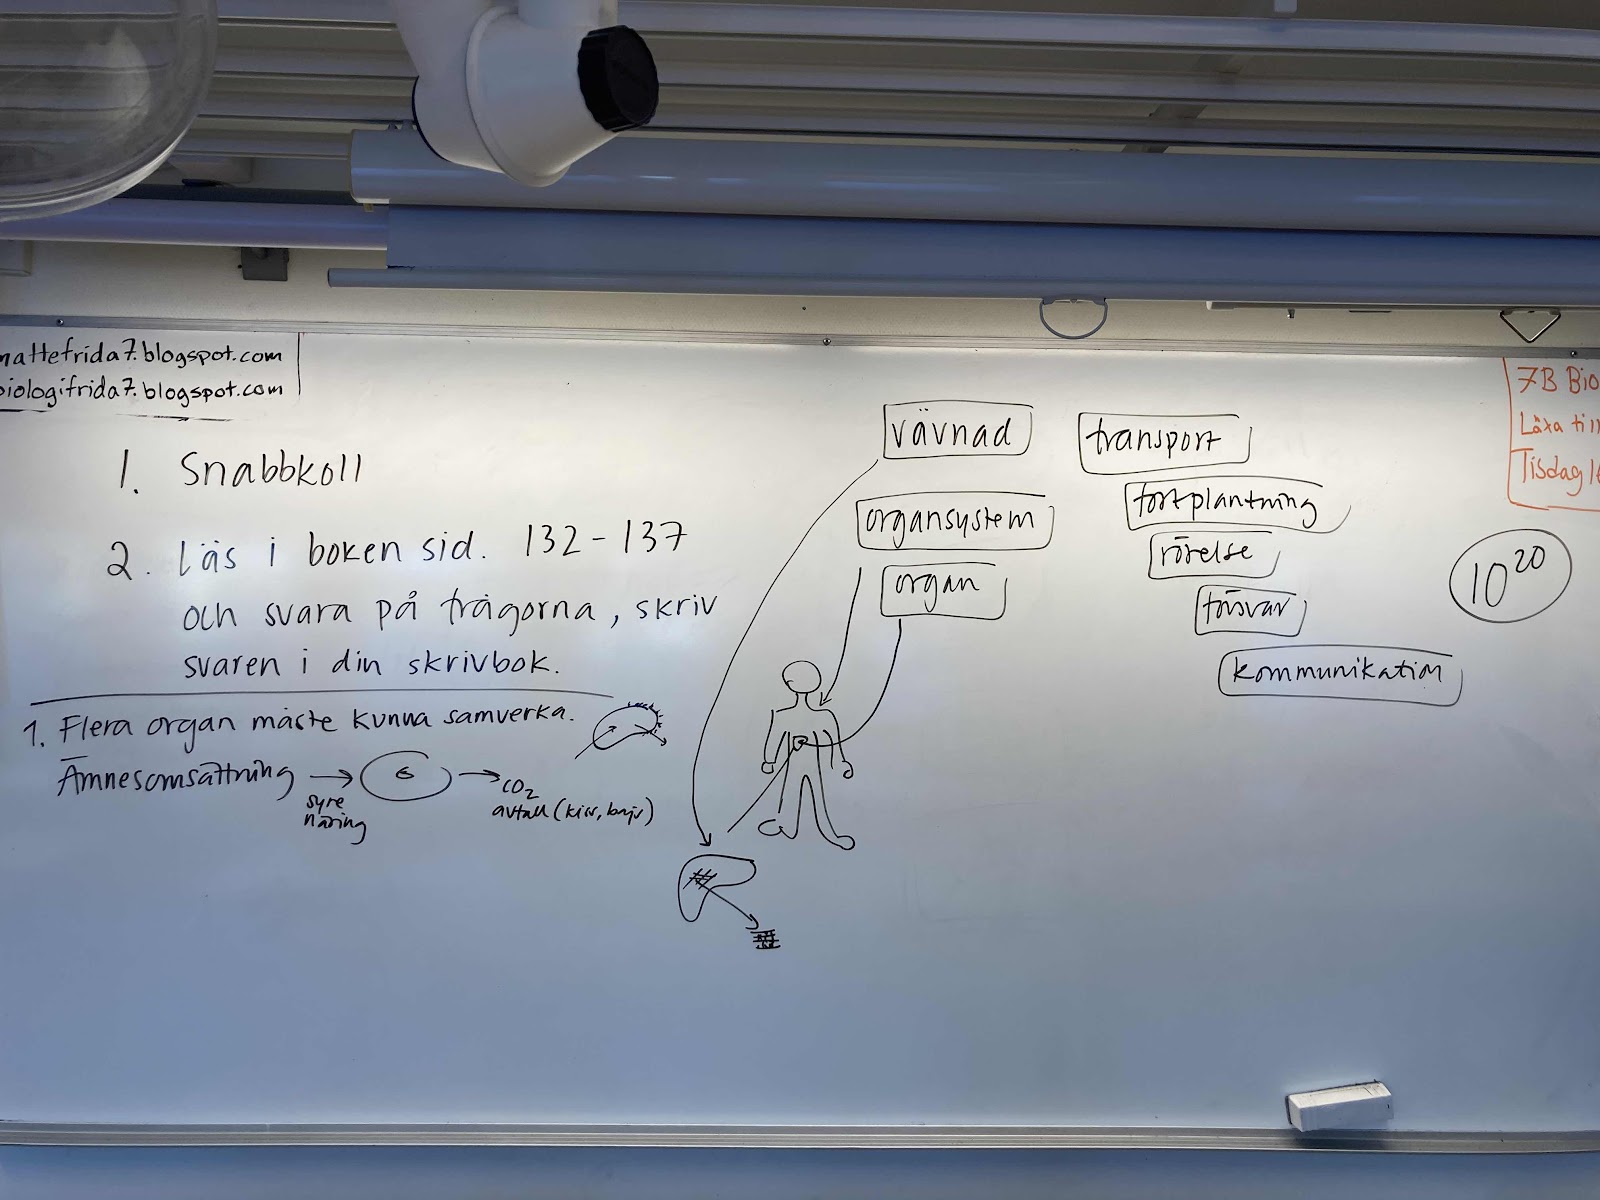 mattefrida7.blogspot.com
biologifrida7.blogspot.com
1. Snabbkoll
2. Läs i boken sid. 132-137
och svara på frågorna, skriv
svaren i din skrivbok.
1. Flera organ måste kunna samverka.
Ämnesomsättning
syre
näring
CO2
avfall (kiss, bajs)
vävnad
organsystem
organ
transport
fortplantning
rörelse
försvar
kommunikation
7B Bio
Läxa till
Tisdag 1
10 20